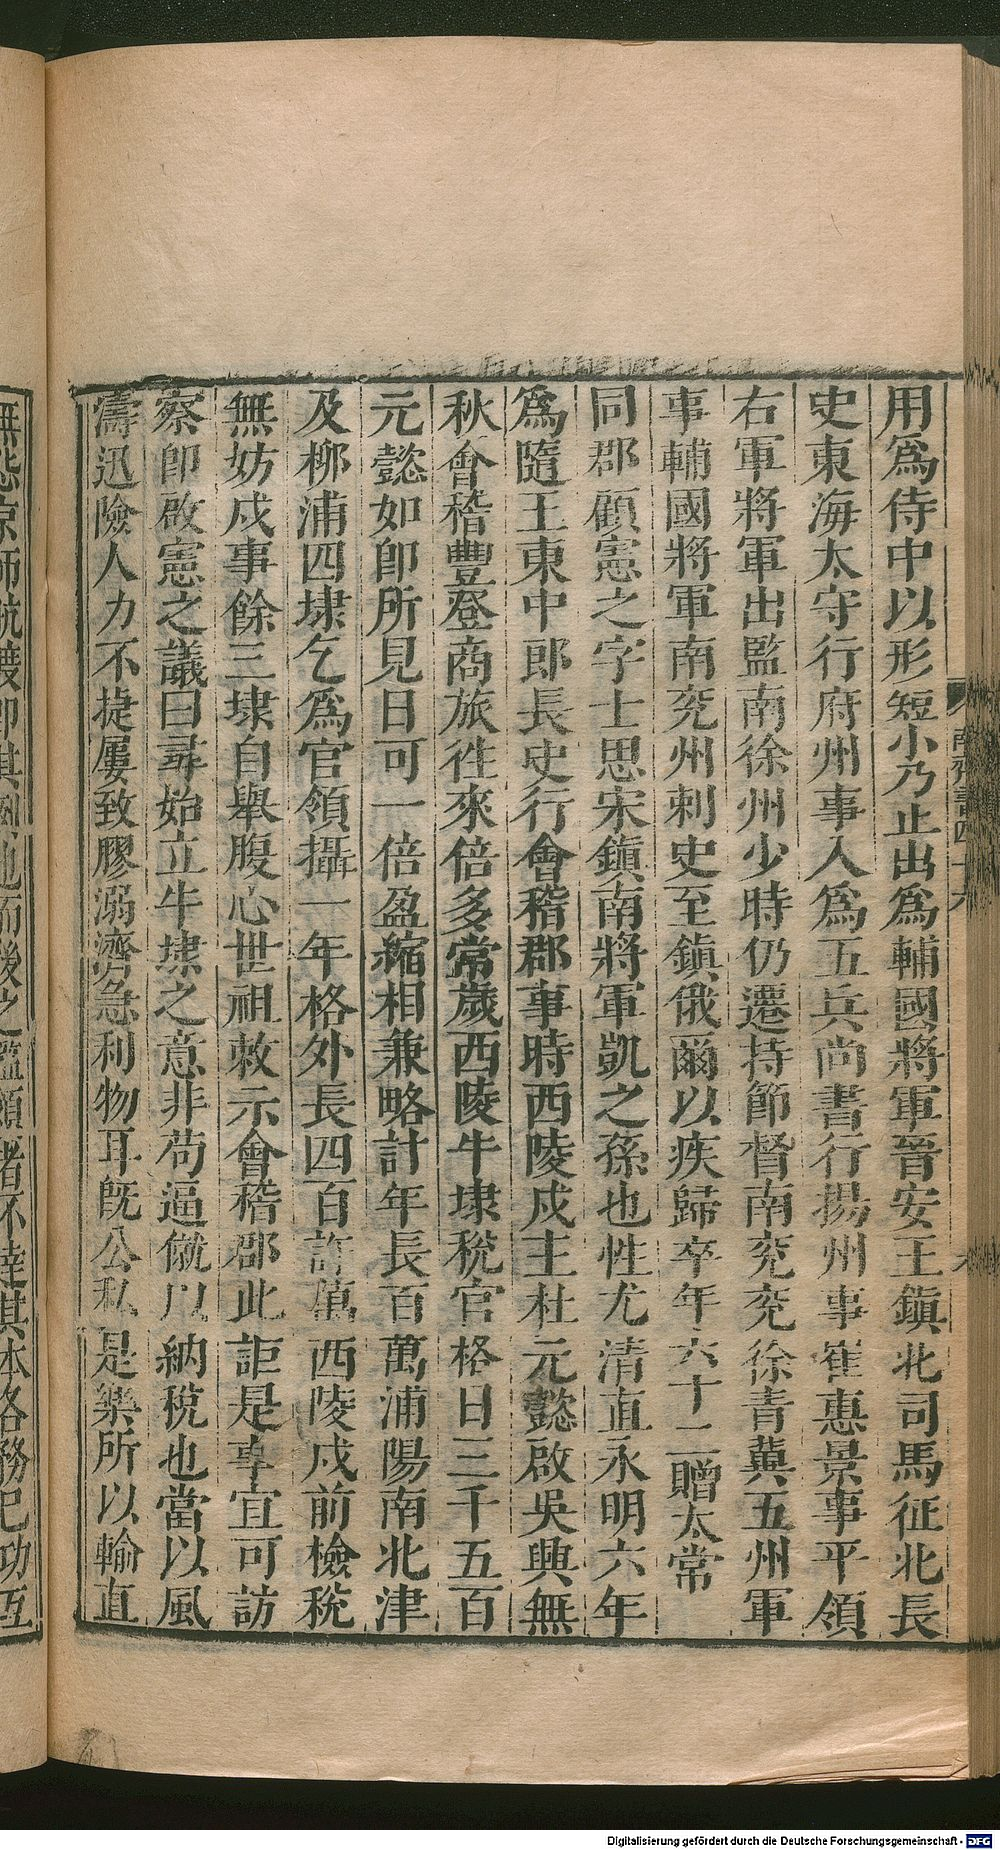 用爲侍中以形短小乃止出爲輔國將軍晉安王鎭北司馬征北長
史東海太守行府州事入爲五兵尚書行揚州事崔惠景事平領
右軍將軍出監南徐州少時仍遷持節督南兖兖徐青冀五州軍
事輔國將軍南兖州刺史至鎭俄爾以疾歸卒年六十二贈太常
同郡顧憲之字士思宋鎭南將軍凱之孫也性尤清直永明六年
爲隨王東中郎長史行會稽郡事時西陵戍主杜元懿啟吳興無
秋會稽豐登商旅徃來倍多常歲西陵牛埭稅官格日三千五百
元懿如卽所見日可一倍盈縮相兼略計年長百萬浦陽南北津
及柳浦四埭乞爲官領攝一年格外長四百許萬西陵戍前檢稅
無妨戍事餘三埭自舉腹心世祖敕示會稽郡此詎是事宜可訪
察卽啟憲之議曰尋始立牛埭之意非苟逼僦以納稅也當以風
濤迅險人力不捷屢致膠溺濟急利物耳旣公私是樂所以輸直
南齊書四十六
六
無怨京師航渡卽其例也而後之監領者不達其本各務已功互
Digitalisierung gefördert durch die Deutsche Forschungsgemeinschaft - DFG